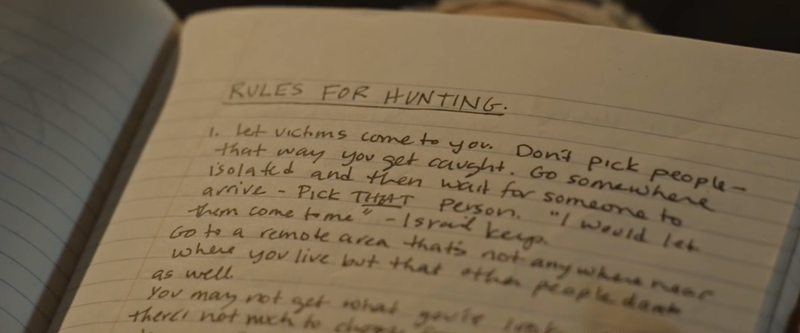 RULES FOR HUNTING.
1. Let victims come to you. Don't pick people -
that way you get caught. Go somewhere
isolated and then wait for someone to
arrive - Pick THAT person. "I would let
them come to me" - Israel Keys.
Go to a remote area that's not anywhere near
where you live but that other people
as well
You may not get what you're look
there's not much to choose